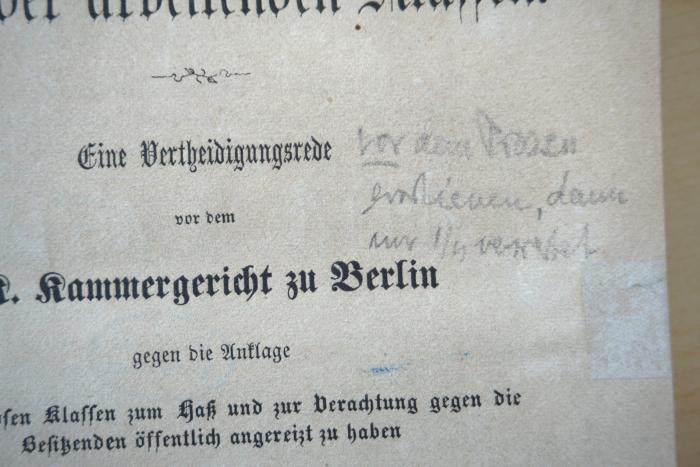 der arbeitenden Klassen.
Eine Vertheidigungsrede
vor dem
vor dem
K. Kammergericht zu Berlin
gegen die Anklage
sen Klassen zum Haß und zur Verachtung gegen die
Besitzenden öffentlich angereizt zu haben